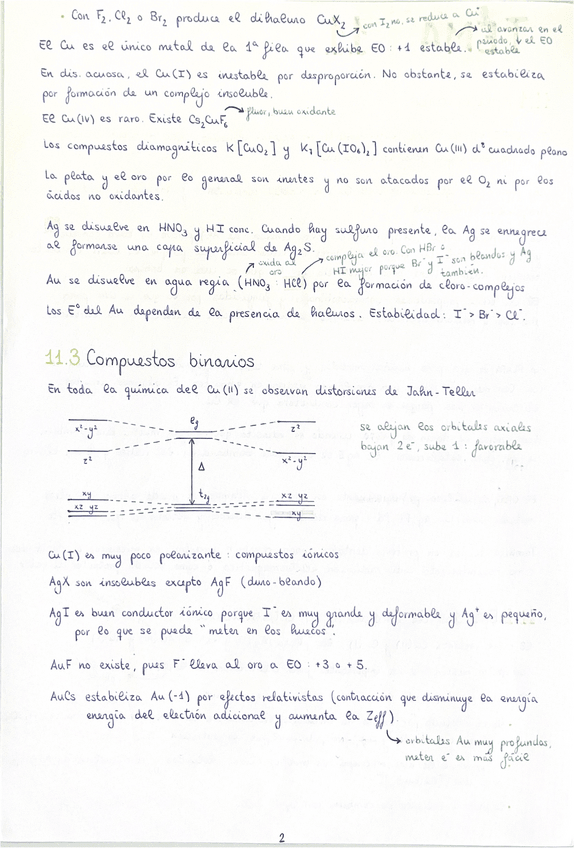 · Con F₂, Cl₂ o Br₂ produce el dihaluro CuX₂ → con I₂ no, se reduce a Cu⁺
El Cu es el único metal de la 1ª fila que exhibe EO: +1 estable. → al avanzar en el
periodo, ↓ el EO
estable
En dis. acuosa, el Cu(I) es inestable por desproporción. No obstante, se estabiliza
por formación de un complejo insoluble.
El Cu(IV) es raro. Existe Cs₂CuF₆ → fluor, buen oxidante
Los compuestos diamagnéticos K[CuO₂] y K₇[Cu(IO₆)₂] contienen Cu(III) d⁸ cuadrado plano
La plata y el oro por lo general son inertes y no son atacados por el O₂ ni por los
ácidos no oxidantes.
Ag se disuelve en HNO₃ y HI conc. Cuando hay sulfuro presente, la Ag se ennegrece
al formarse una capa superficial de Ag₂S.
oxida al
oro
compleja el oro. Con HBr o
HI mejor porque Br⁻ y I⁻ son blandos y Ag
también.
Au se disuelve en agua regia (HNO₃ : HCl) por la formación de cloro-complejos
Los E° del Au dependen de la presencia de haluros. Estabilidad: I⁻ > Br⁻ > Cl⁻.
11.3 Compuestos binarios
En toda la química del Cu(II) se observan distorsiones de Jahn-Teller
x²-y²
eg
z²
z²
x²-y²
Δ
xy
t₂g
xz yz
xz yz
xy
se alejan los orbitales axiales
bajan 2e⁻, sube 1 : favorable
Cu(I) es muy poco polarizante : compuestos iónicos
AgX son insolubles excepto AgF (duro-blando)
AgI es buen conductor iónico porque I⁻ es muy grande y deformable y Ag⁺ es pequeño,
por lo que se puede "meter en los huecos".
AuF no existe, pues F⁻ lleva al oro a EO: +3 o +5.
AuCs estabiliza Au(-1) por efectos relativistas (contracción que disminuye la energía
energía del electrón adicional y aumenta la Zeff)
→ orbitales Au muy profundos,
meter e⁻ es más fácil
2